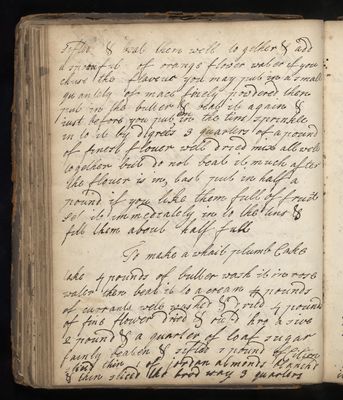 sifted & beat them well together & add
a spoonful of orange flower water if you
chuse the flavour you may put in a small
quantety of mace finely powdered then
put in the butter & beat it again &
Just before you put in the tins sprinkle
in to it by degrees 3 quarters of a pound
of finest flower well dried mix all well
together but do not beat it much after
the flower is in, last put in half a
pound if you like them full of fruit
set it immediately in to the tins &
fill them about half full
To make a whait plumb Cake
take 4 pounds of butter wash it in rose
water then beat it to a cream 4 pounds
of currants well washed & dried 4 pounds
of fine flower dried &
2 pound & a quarter of loaf sugar
finely beaten & sifted 1 pound of
thin of jordan almonds blanch'd
& thin sliced the broad way 3 quarters